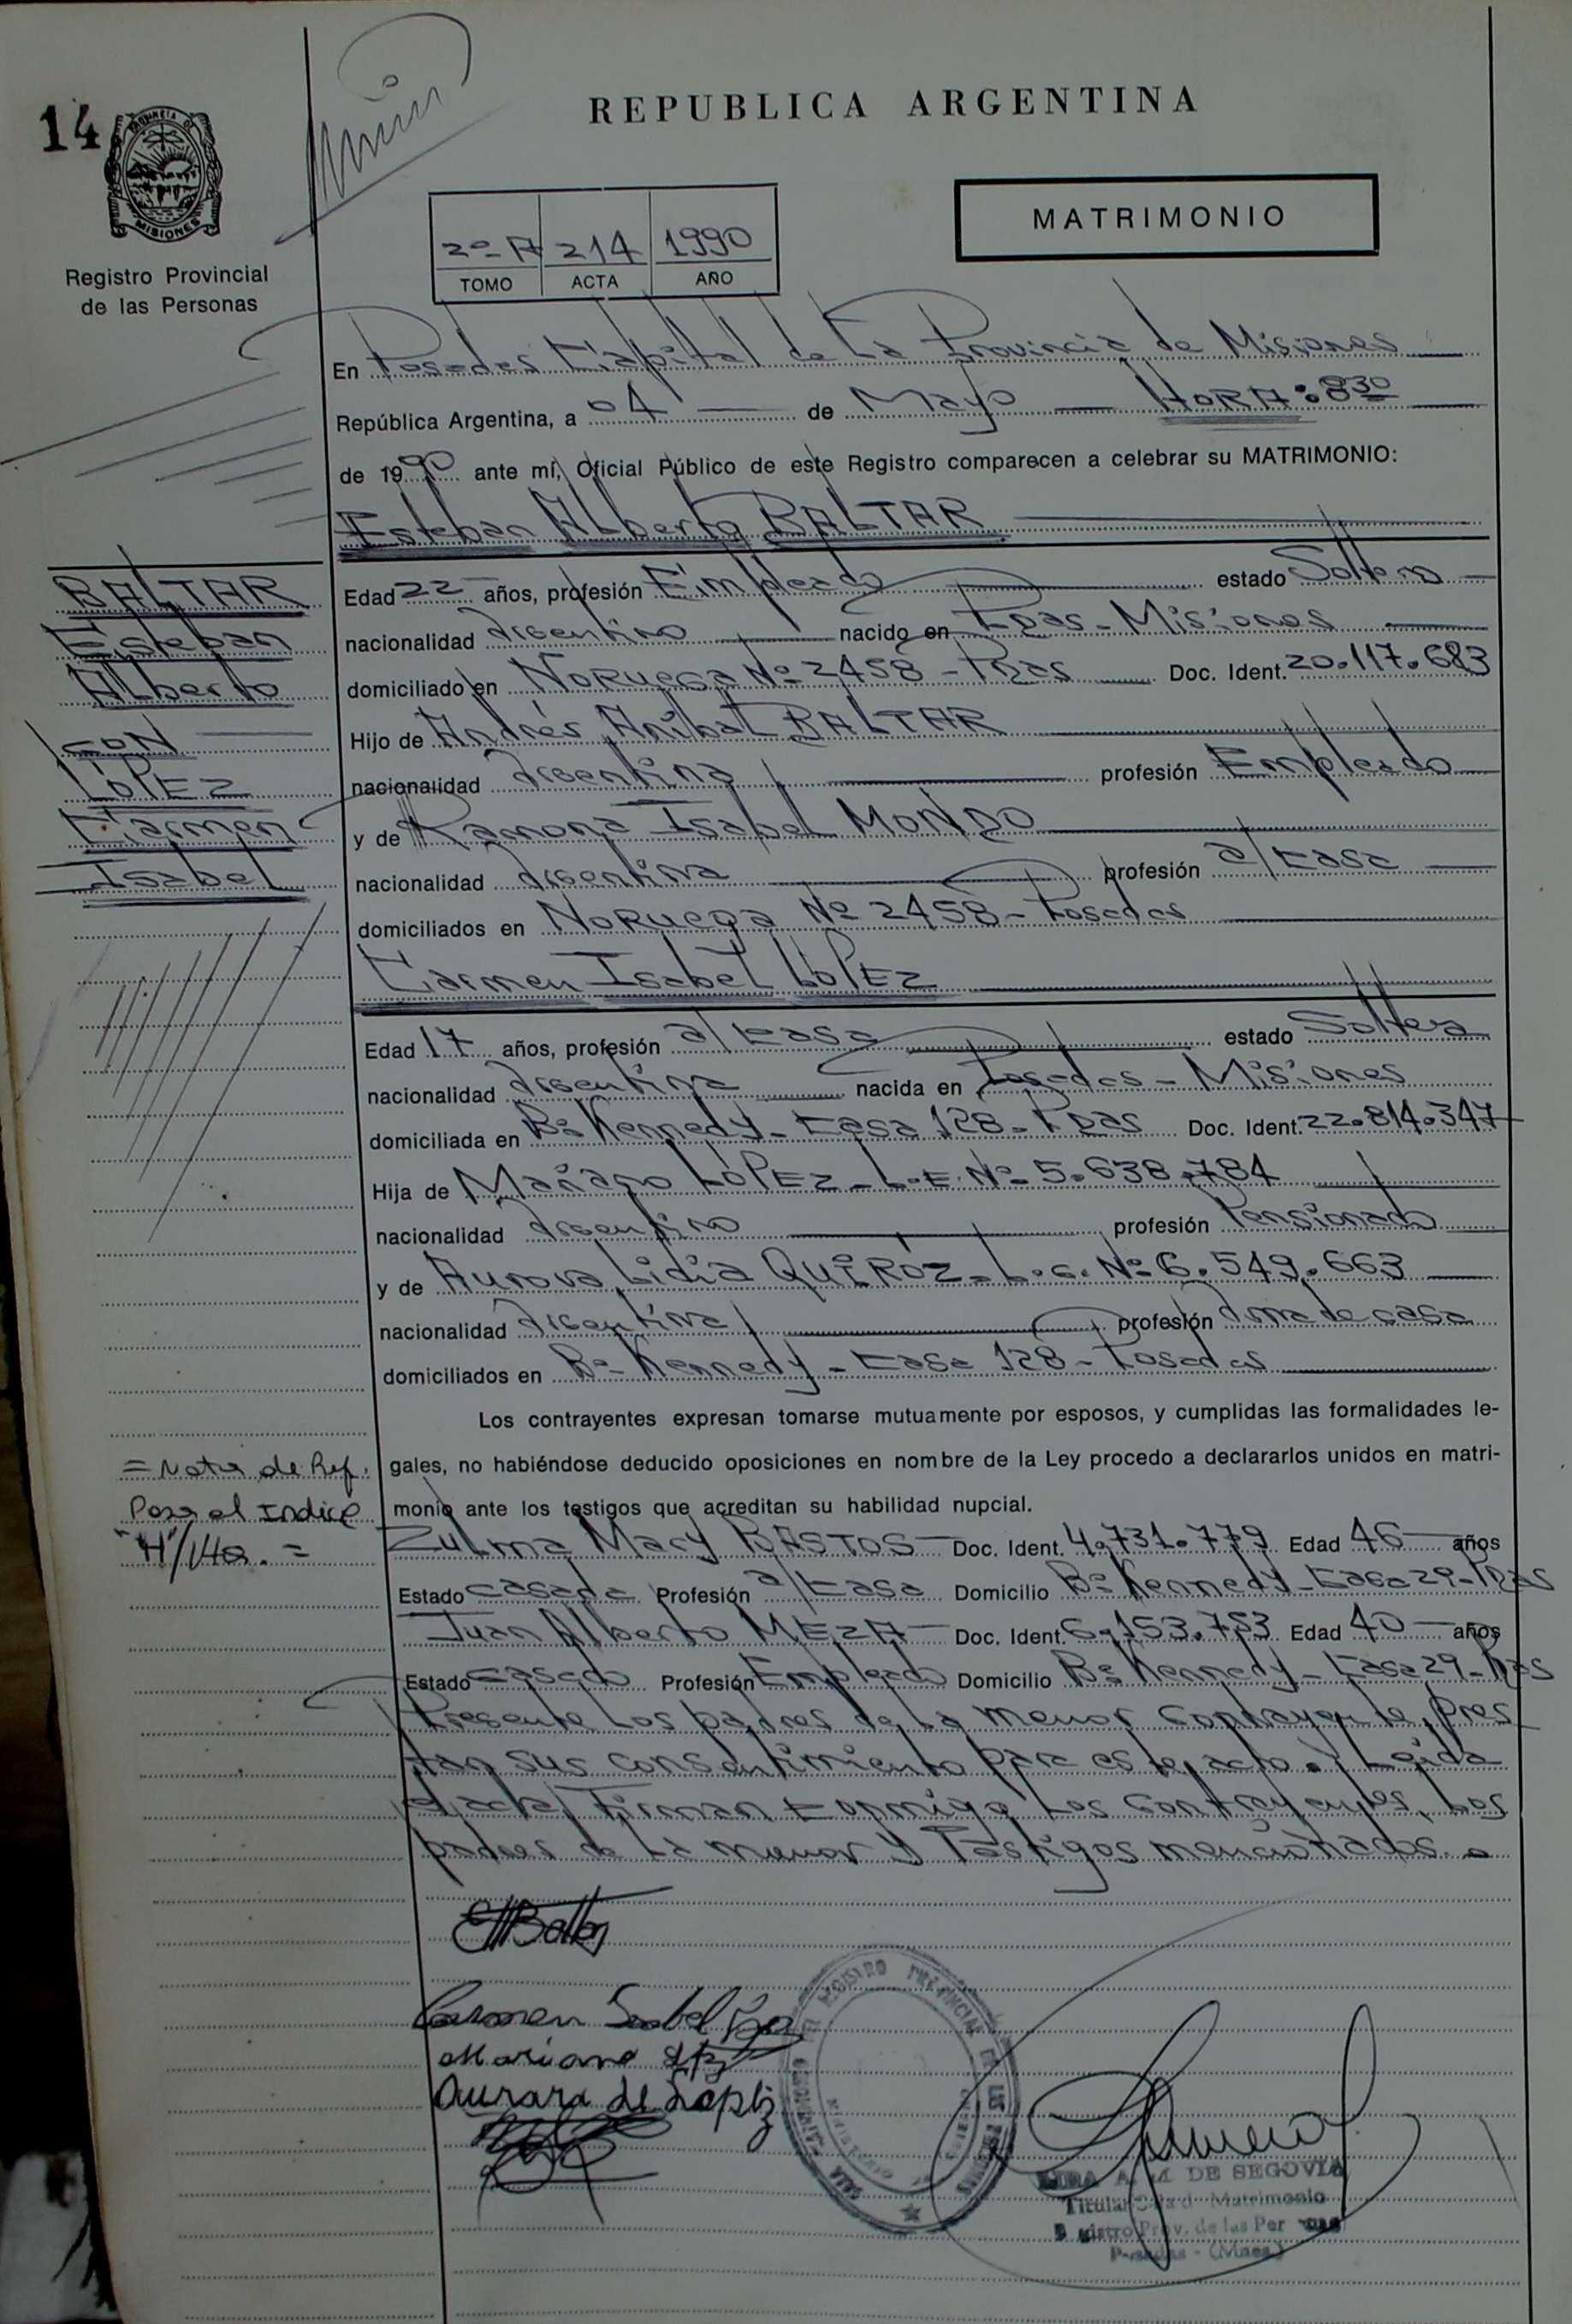 14
REPUBLICA ARGENTINA
PROVINCIA DE
MISIONES
Registro Provincial
de las Personas
2º-A 214 1990
TOMO ACTA AÑO
MATRIMONIO
En Posadas Capital de La Provincia de Misiones
República Argentina, a 04 de Mayo HORA: 8 30
de 1990 ante mí, Oficial Público de este Registro comparecen a celebrar su MATRIMONIO:
Esteban Alberto BALTAR
BALTAR
Esteban
Alberto
CON
LOPEZ
Carmen
Isabel
Edad 22 años, profesión Empleado estado Soltero
nacionalidad Argentino nacido en Pdas-Misiones
domiciliado en Noruega Nº 2458 - Pdas Doc. Ident. 20.117.683
Hijo de Andrés Aníbal BALTAR
nacionalidad Argentina profesión Empleado
y de Ramona Isabel MONDO
nacionalidad Argentina profesión a/casa
domiciliados en Noruega Nº 2458 - Posadas
Carmen Isabel LÓPEZ
Edad 17 años, profesión a/casa estado Soltera
nacionalidad Argentina nacida en Posadas - Misiones
domiciliada en Bº Kennedy - Casa 128 - Pdas Doc. Ident. 22.814.347
Hija de Mariano LÓPEZ - L.E. Nº 5.638.784
nacionalidad Argentino profesión Pensionado
y de Aurora Lidia QUIRÓZ - L.C. Nº 6.549.663
nacionalidad Argentina profesión ama de casa
domiciliados en Bº Kennedy - Casa 128 - Posadas
Los contrayentes expresan tomarse mutuamente por esposos, y cumplidas las formalidades le-
gales, no habiéndose deducido oposiciones en nombre de la Ley procedo a declararlos unidos en matri-
monio ante los testigos que acreditan su habilidad nupcial.
= Nota de Ref.
Para el Indice
"H"/Vta. =
Zulma Mary BASTOS Doc. Ident. 4.731.779 Edad 46 años
Estado casada Profesión a/casa Domicilio Bº Kennedy - Casa 29 - Pdas
Juan Alberto MEZA Doc. Ident. 6.153.753 Edad 40 años
Estado casado Profesión Empleado Domicilio Bº Kennedy - Casa 29 - Pdas
Presente Los padres de la menor contrayente, pres
tan sus consentimiento para este acto. Y Leida
el acta, Firman conmigo Los contrayentes, Los
padres de La menor y Testigos mencionados.
EABaltar
Carmen Isabel López
Mariano
Aurora de Lopez
REGISTRO PROVINCIAL DE LAS PERSONAS
MINISTERIO DE GOBIERNO
A. M. DE SEGOVIA
Titular Sala d Matrimonio
Registro Prov. de las Personas
Posadas - (Mnes.)